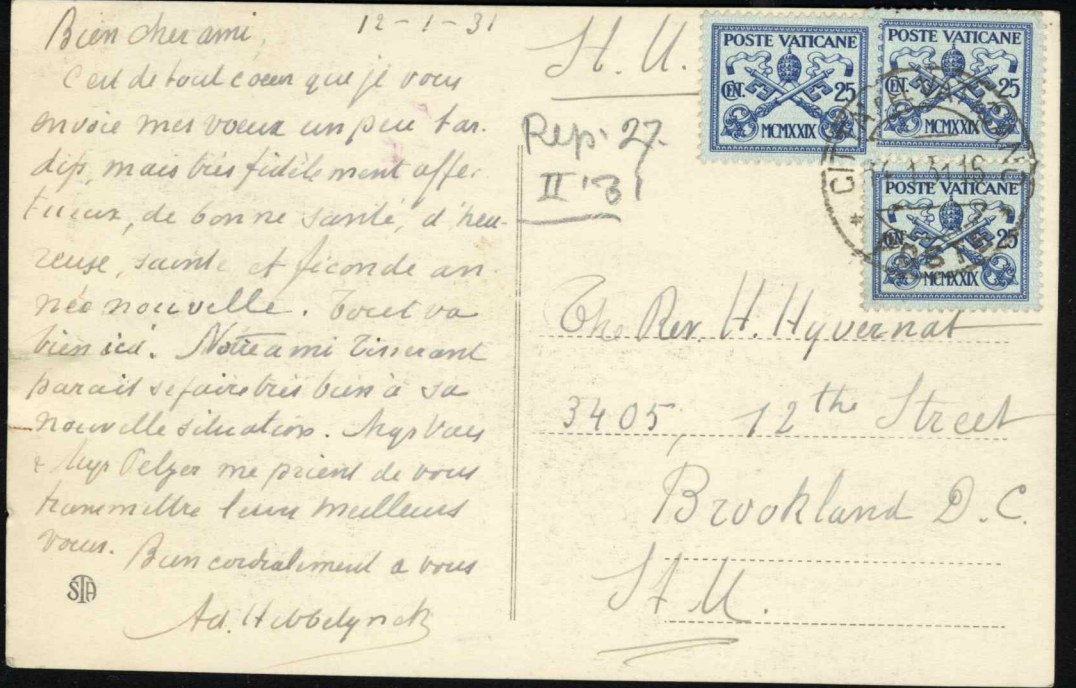 Bien cher ami, 12-1-31
C'est de tout coeur que je vous
envoie mes voeux un peu tar-
difs, mais très fidèlement affec-
tueux, de bonne santé, d'heu-
reuse, sainte et féconde an-
née nouvelle. Tout va
bien ici. Notre ami Tisserant
parait se faire très bien à sa
nouvelle situation. Mgr Vaes
& Mgr Pelzer me prient de vous
transmettre leurs meilleurs
voeux.
Bien cordialement à vous
Ad. Hebbelynck
STA
POSTE VATICANE
CEN. 25
MCMXXIX
POSTE VATICANE
CEN. 25
MCMXXIX
POSTE VATICANE
CEN. 25
MCMXXIX
POSTE
Rep: 27.
II '31
The Rev. H. Hyvernat
3405, 12th Street
Brookland D.C.